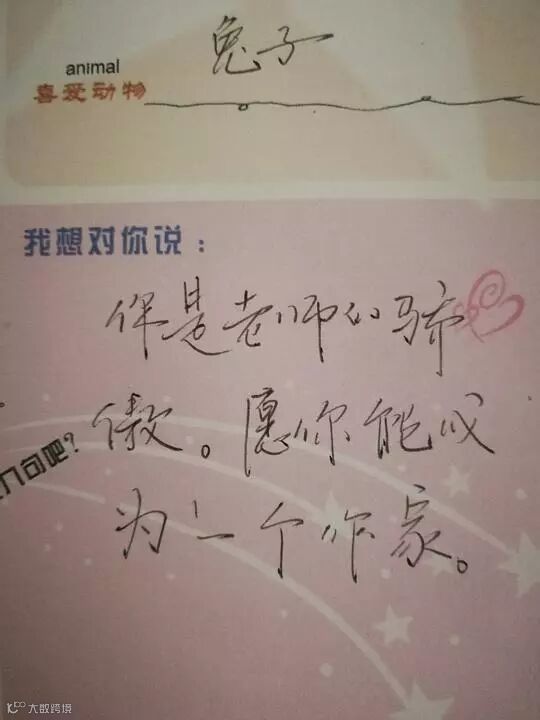 兔子
animal
喜爱动物
我想对你说：
你是老师的骄
傲。愿你能成
几句吧？
为一个作家。
大数跨境